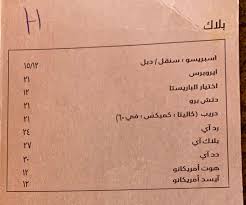 H
بلاك
اسبريسو : سنقل / دبل ١٥/١٢
ايروبرس ٢١
اختيار الباريستا ٢١
دتش برو ٢١
دريب (كاليتا : كميكس : في ٦٠) ٢١
رد آي ٢٤
بلاك آي ٢٧
دد آي ٣٠
هوت أمريكانو ١٢
آيسد أمريكانو ١٢